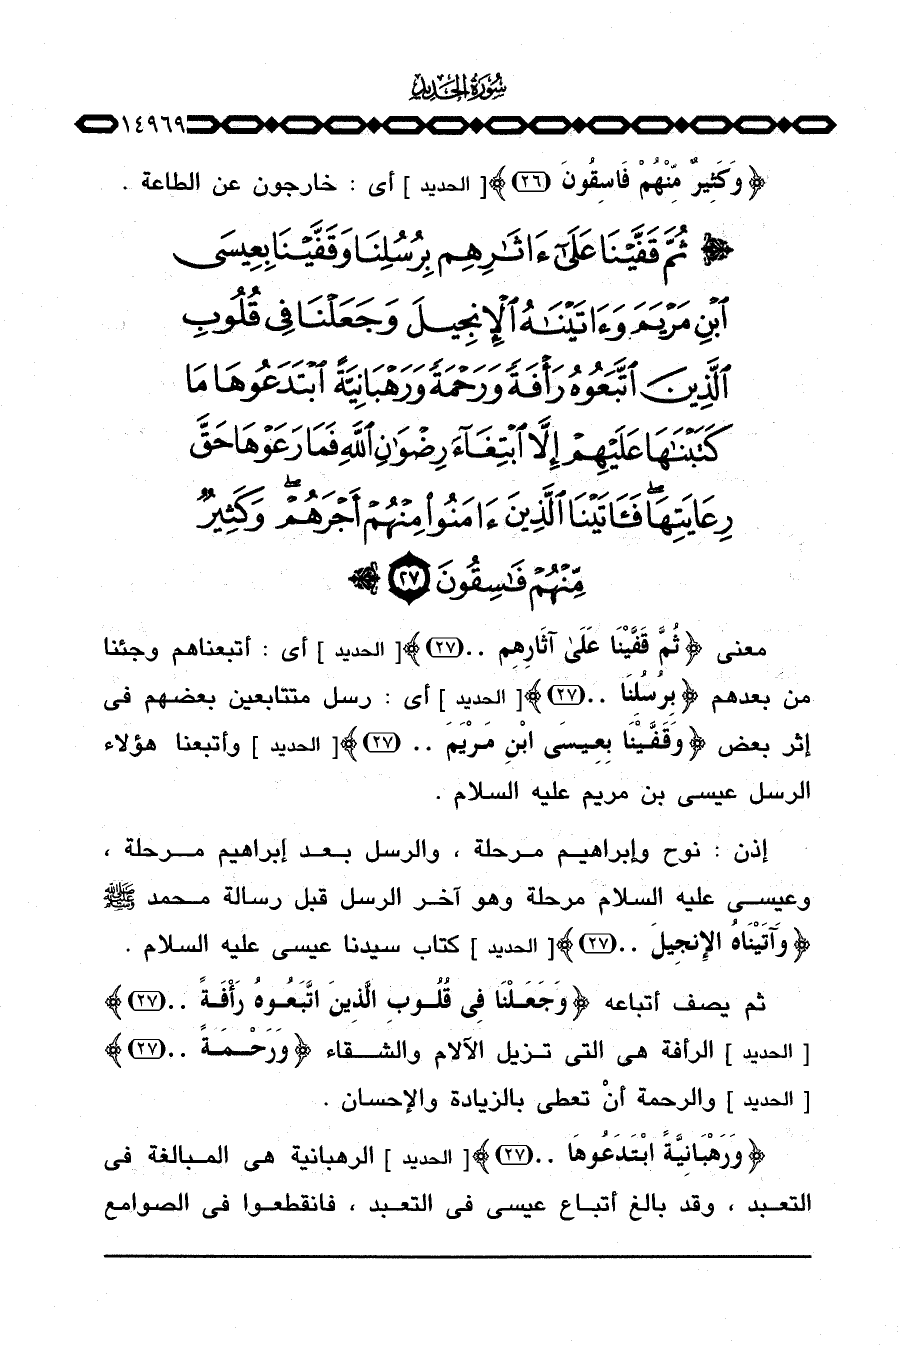 سُورَةُ الحَدِيدِ
١٤٩٦٩
﴿ وَكَثِيرٌ مِّنْهُمْ فَاسِقُونَ (٢٦) ﴾ [ الحديد ] أى : خارجون عن الطاعة .
﴿ ثُمَّ قَفَّيْنَا عَلَىٰٓ ءَاثَٰرِهِم بِرُسُلِنَا وَقَفَّيْنَا بِعِيسَى
ٱبْنِ مَرْيَمَ وَءَاتَيْنَٰهُ ٱلْإِنجِيلَ وَجَعَلْنَا فِى قُلُوبِ
ٱلَّذِينَ ٱتَّبَعُوهُ رَأْفَةً وَرَحْمَةً وَرَهْبَانِيَّةً ٱبْتَدَعُوهَا مَا
كَتَبْنَٰهَا عَلَيْهِمْ إِلَّا ٱبْتِغَآءَ رِضْوَٰنِ ٱللَّهِ فَمَا رَعَوْهَا حَقَّ
رِعَايَتِهَا ۖ فَـَٔاتَيْنَا ٱلَّذِينَ ءَامَنُوا۟ مِنْهُمْ أَجْرَهُمْ ۖ وَكَثِيرٌ
مِّنْهُمْ فَٰسِقُونَ (٢٧) ﴾
معنى ﴿ ثُمَّ قَفَّيْنَا عَلَىٰ آثَارِهِم .. (٢٧) ﴾ [ الحديد ] أى : أتبعناهم وجئنا
من بعدهم ﴿ بِرُسُلِنَا .. (٢٧) ﴾ [ الحديد ] أى : رسل متتابعين بعضهم فى
إثر بعض ﴿ وَقَفَّيْنَا بِعِيسَى ابْنِ مَرْيَمَ .. (٢٧) ﴾ [ الحديد ] وأتبعنا هؤلاء
الرسل عيسى بن مريم عليه السلام .
إذن : نوح وإبراهيم مرحلة ، والرسل بعد إبراهيم مرحلة ،
وعيسى عليه السلام مرحلة وهو آخر الرسل قبل رسالة محمد ﷺ
﴿ وَآتَيْنَاهُ الإِنجِيلَ .. (٢٧) ﴾ [ الحديد ] كتاب سيدنا عيسى عليه السلام .
ثم يصف أتباعه ﴿ وَجَعَلْنَا فِى قُلُوبِ الَّذِينَ اتَّبَعُوهُ رَأْفَةً .. (٢٧) ﴾
[ الحديد ] الرأفة هى التى تزيل الآلام والشقاء ﴿ وَرَحْمَةً .. (٢٧) ﴾
[ الحديد ] والرحمة أنْ تعطى بالزيادة والإحسان .
﴿ وَرَهْبَانِيَّةً ابْتَدَعُوهَا .. (٢٧) ﴾ [ الحديد ] الرهبانية هى المبالغة فى
التعبد ، وقد بالغ أتباع عيسى فى التعبد ، فانقطعوا فى الصوامع